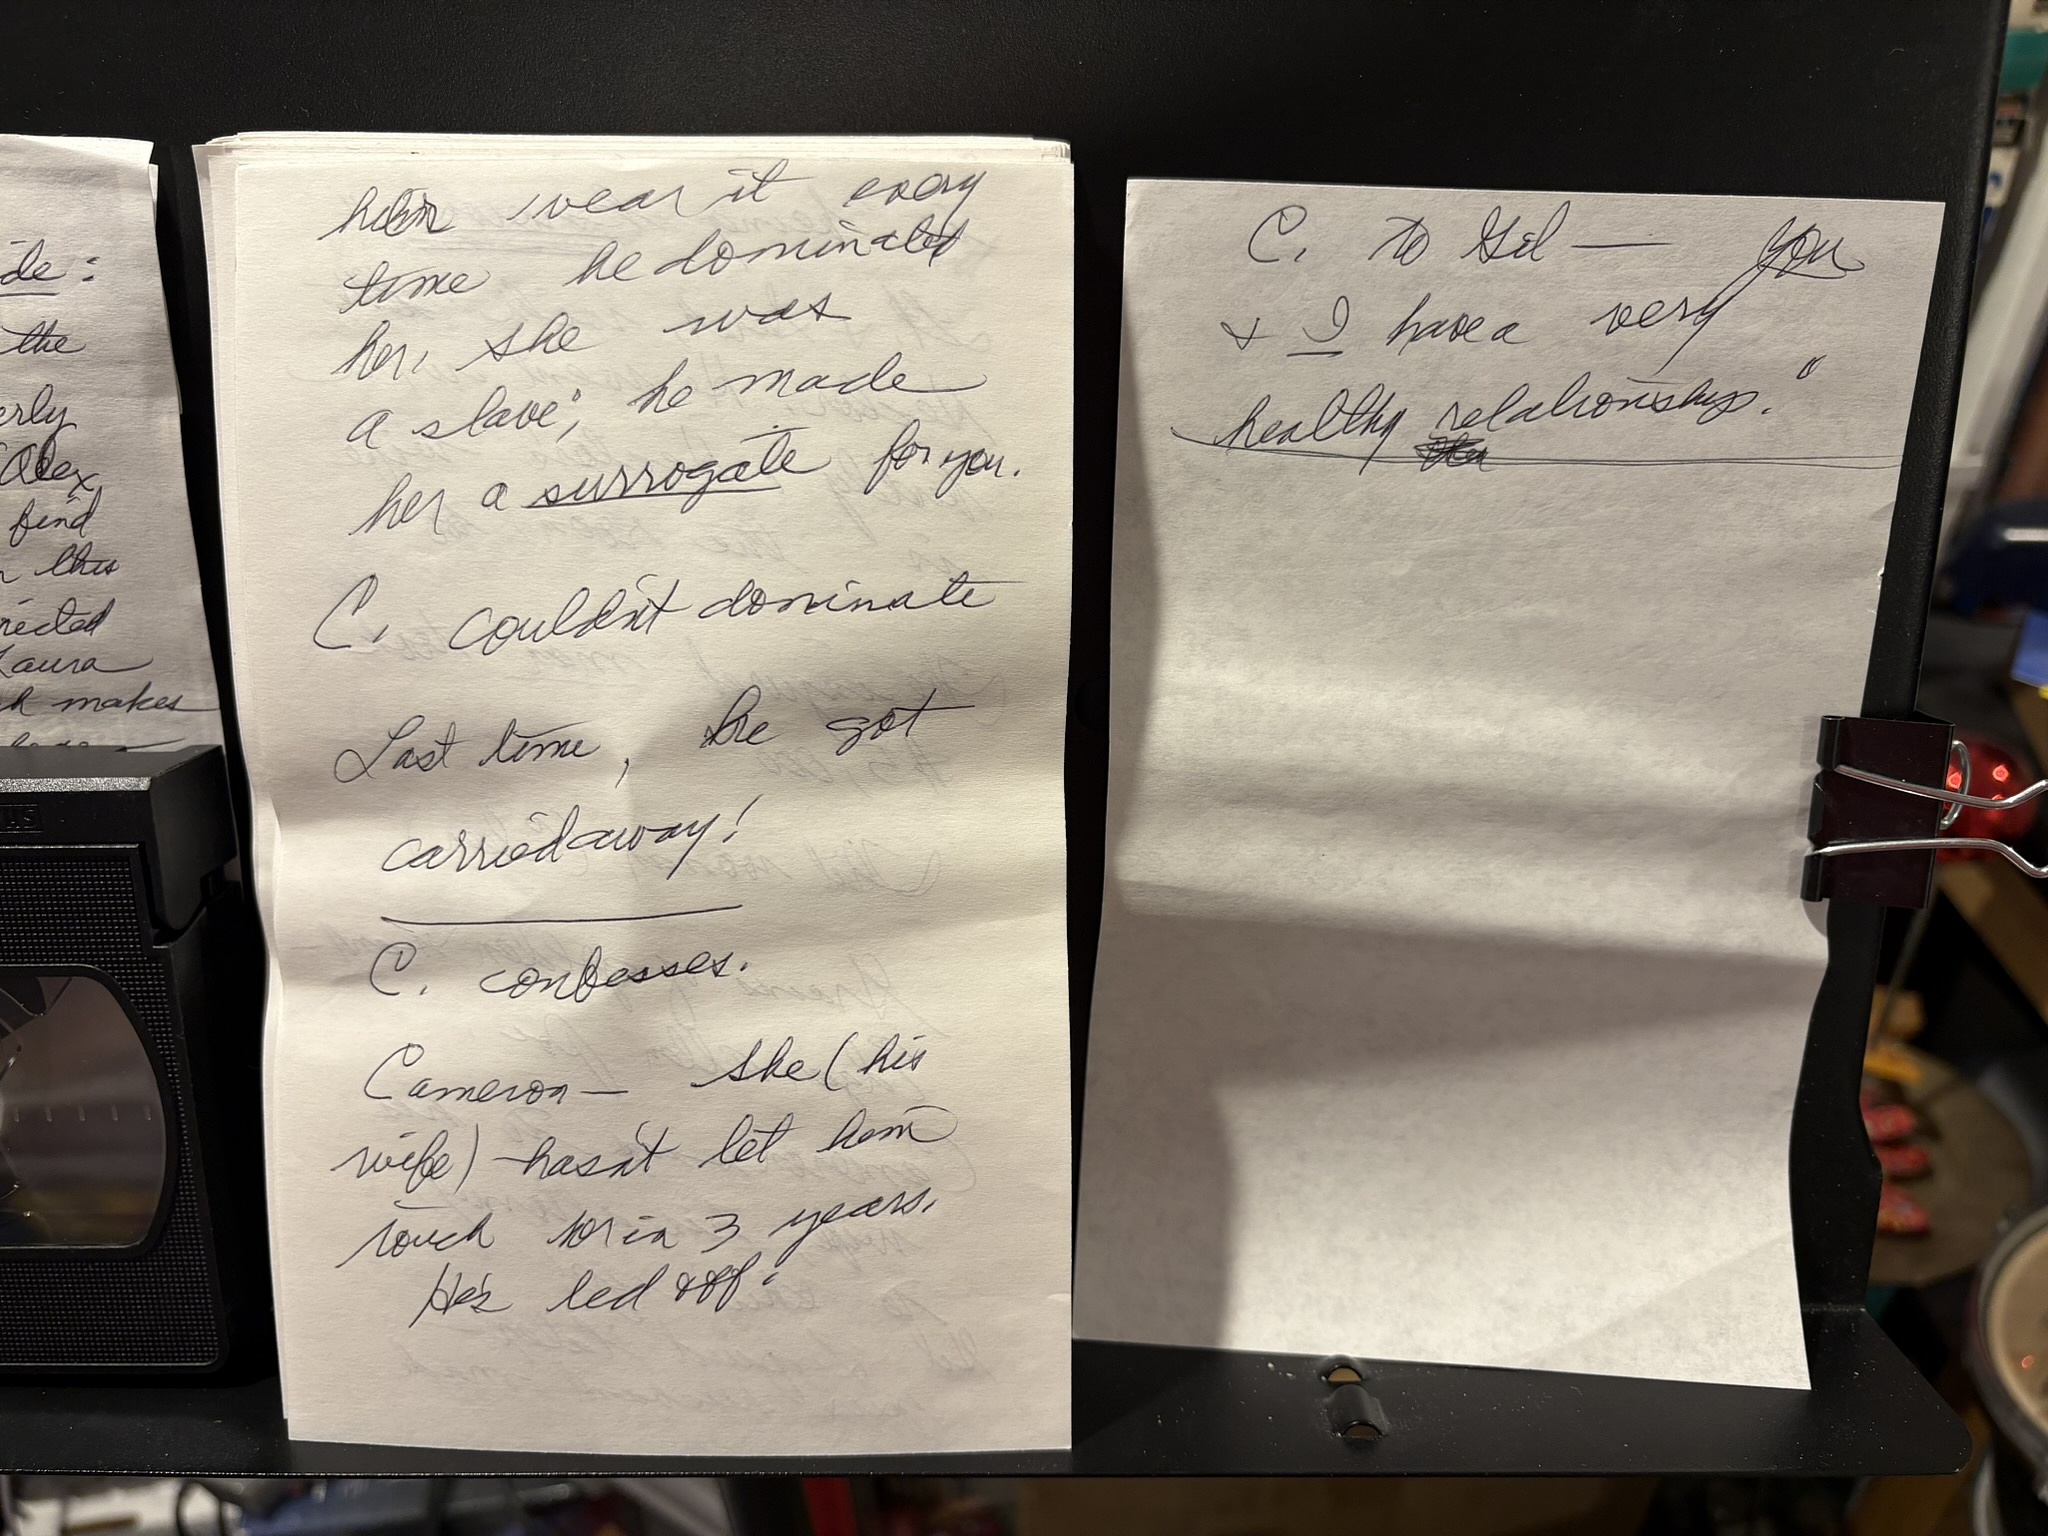 de:
the
erly
Alex
find
n this
nected
Laura
ch makes
him wear it every
time he dominated
her, she was
a slave; he made
her a surrogate for you.
C. couldn't dominate
Last time, he got
carried away!
C. confesses.
Cameron— she (his
wife) hasn't let him
touch her in 3 years.
He's led off.
C. to Gil — you
+ I have a very
healthy relationship."